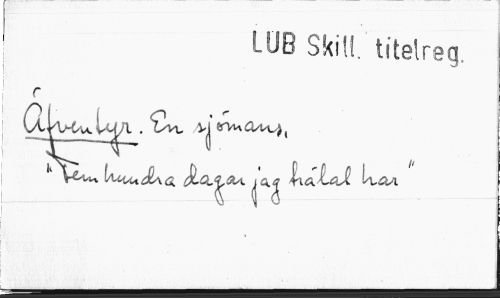 LUB Skill. titelreg.
Äfventyr. En sjömans,
"Femhundra dagar jag trälat har"